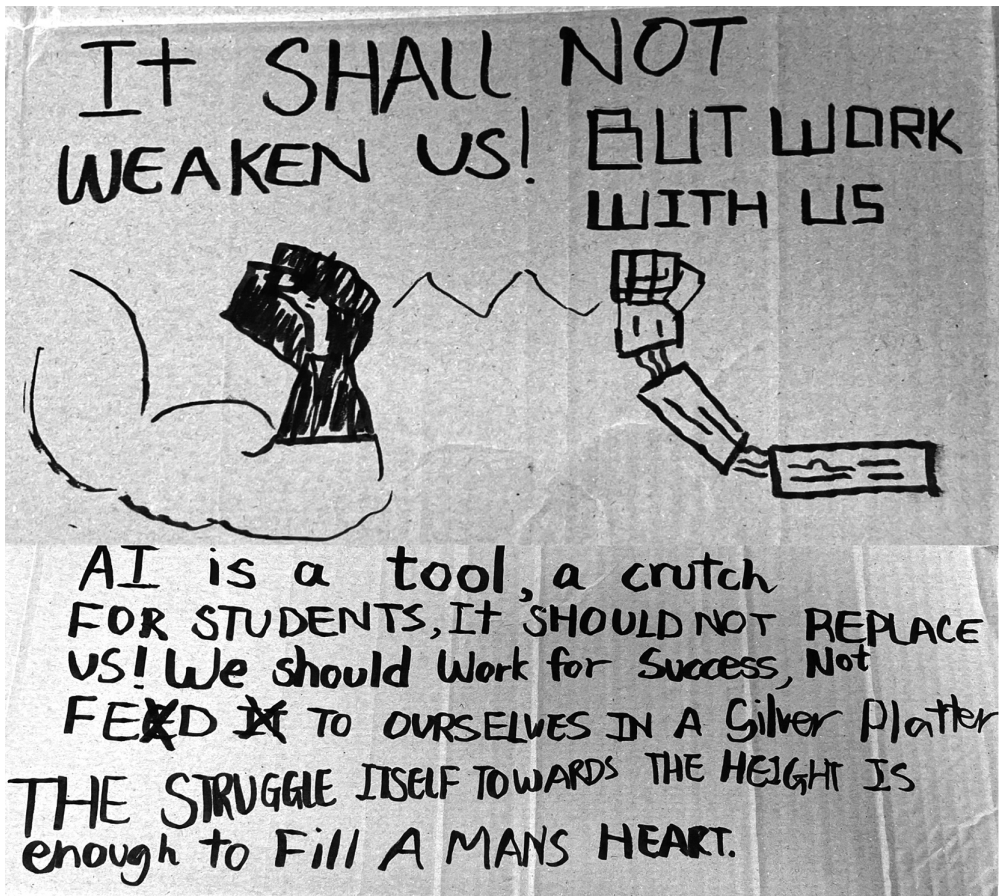 It SHALL NOT
WEAKEN US! BUT WORK
WITH US
AI is a tool, a crutch
FOR STUDENTS, It SHOULD NOT REPLACE
US! We should Work for Success, Not
FED TO OURSELVES IN A Silver Platter
THE STRUGGLE ITSELF TOWARDS THE HEIGHT IS
enough to Fill A MANS HEART.